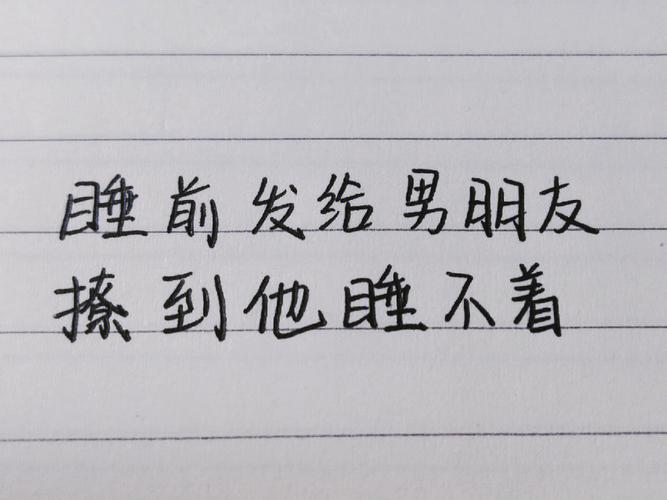 睡前发给男朋友
撩到他睡不着